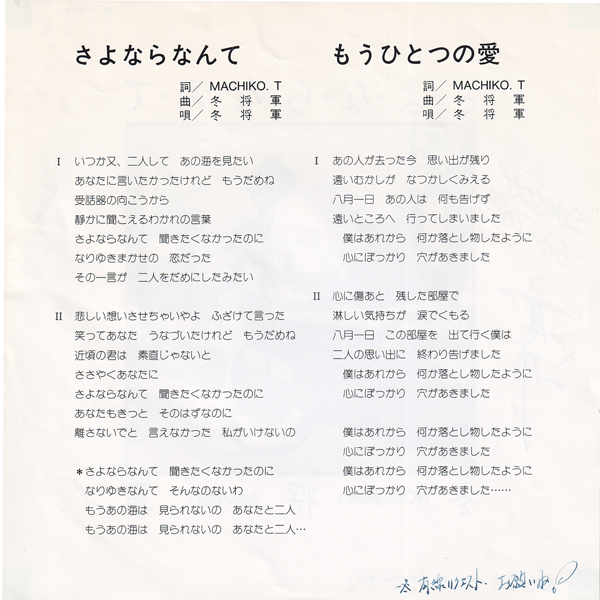 さよならなんて
詞／ MACHIKO. T
曲／ 冬 将 軍
唄／ 冬 将 軍
I いつか又、二人して あの海を見たい
あなたに言いたかったけれど もうだめね
受話器の向こうから
静かに聞こえるわかれの言葉
さよならなんて 聞きたくなかったのに
なりゆきまかせの 恋だった
その一言が 二人をだめにしたみたい
II 悲しい想いさせちゃいやよ ふざけて言った
笑ってあなた うなづいたけれど もうだめね
近頃の君は 素直じゃないと
ささやくあなたに
さよならなんて 聞きたくなかったのに
あなたもきっと そのはずなのに
離さないでと 言えなかった 私がいけないの
＊さよならなんて 聞きたくなかったのに
なりゆきなんて そんなのないわ
もうあの海は 見られないの あなたと二人
もうあの海は 見られないの あなたと二人…
もうひとつの愛
詞／ MACHIKO. T
曲／ 冬 将 軍
唄／ 冬 将 軍
I あの人が去った今 思い出が残り
遠いむかしが なつかしくみえる
八月一日 あの人は 何も告げず
遠いところへ 行ってしまいました
僕はあれから 何か落とし物したように
心にぽっかり 穴があきました
II 心に傷あと 残した部屋で
淋しい気持ちが 涙でくもる
八月一日 この部屋を 出て行く僕は
二人の思い出に 終わり告げました
僕はあれから 何か落とし物したように
心にぽっかり 穴があきました
僕はあれから 何か落とし物したように
心にぽっかり 穴があきました
僕はあれから 何か落とし物したように
心にぽっかり 穴があきました……
有線リクエスト、お願いね。